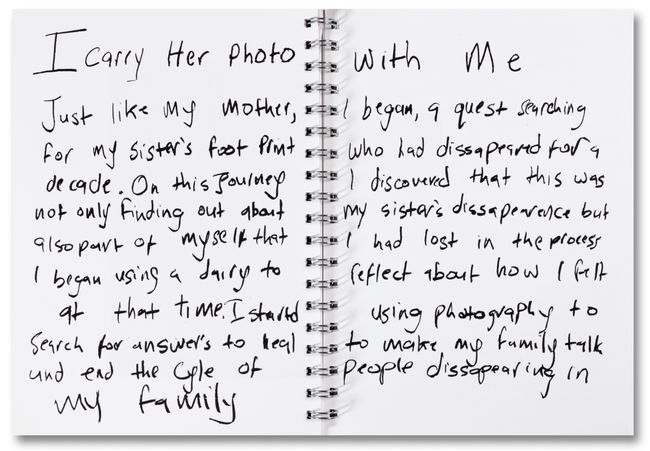 I Carry Her Photo with Me
Just like my mother, I began, a quest searching
for my sister's foot print who had dissapeared for a
decade. On this Journey I discovered that this was
not only finding out about my sister's dissapearence but
also part of myself that I had lost in the process
I began using a dairy to reflect about how I felt
at that time. I started using photography to
search for answer's to heal to make my family talk
and end the cyle of people dissapearing in
my family